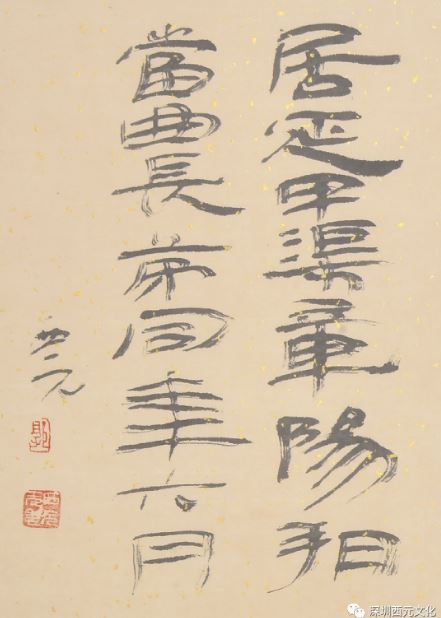 居延甲渠章陽
當曲長同年六月
西元
深圳西元文化